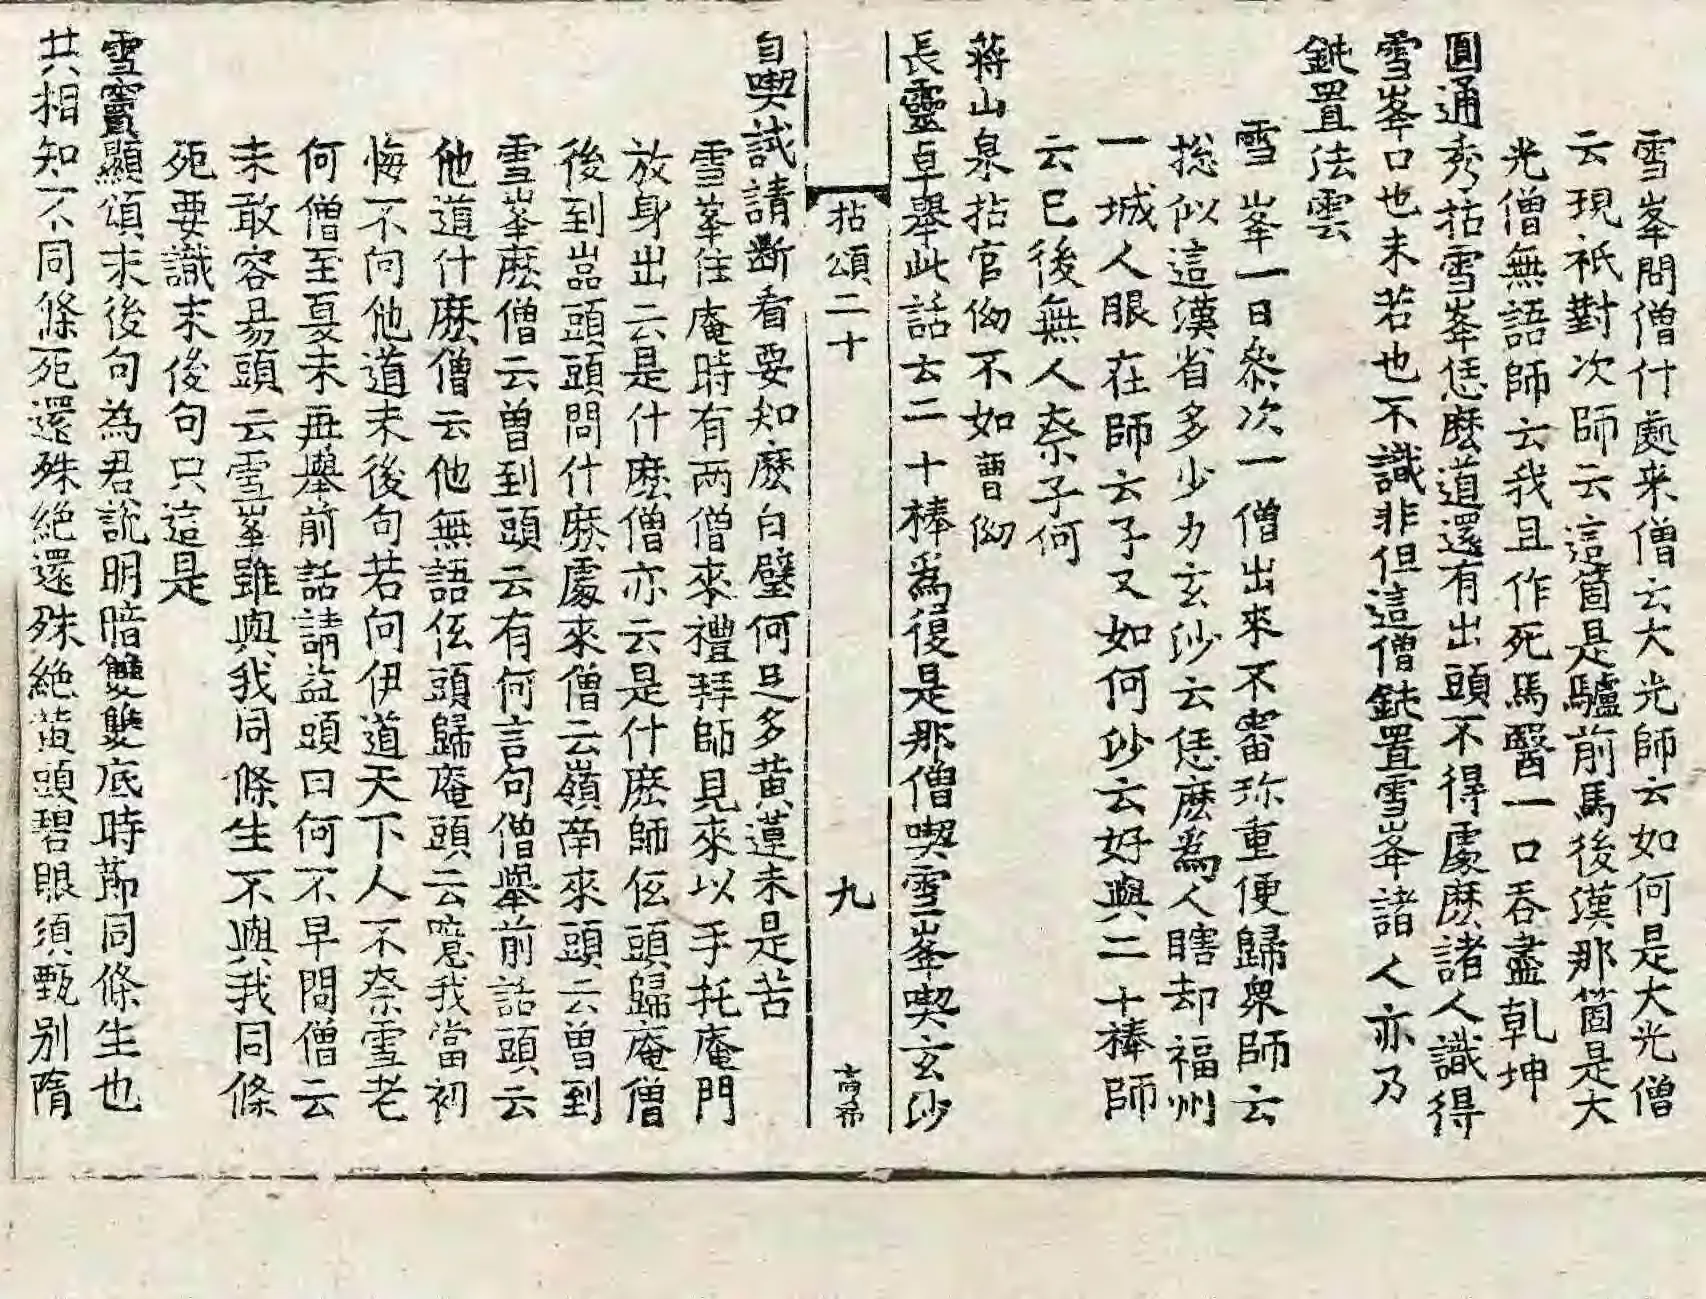 雪峯問僧什處来僧云大光師云如何是大光僧
云現祇對次師云這箇是驢前馬後漢那箇是大
光僧無語師云我且作死馬醫一口吞盡乹坤
圓通秀拈雪峯恁麽道還有出頭不得處麽諸人識得
雪峯口也未若也不識非但這僧鈍置雪峯諸人亦乃
鈍置法雲
雪峯一日叅次一僧出來不審珎重便歸衆師云
捴似這漢省多少力玄沙云恁麽為人瞎却福州
一城人眼在師云子又如何沙云好與二十棒師
云已後無人奈子何
蔣山泉拈官㘭不如曹㘭
長靈卓舉此話去二十棒為復是那僧喫雪峯喫玄沙
拈頌二十
九
自喫試請斷看要知麽白璧何足多黄蓮未是苦
雪峯住庵時有兩僧來禮拜師見來以手托庵門
放身出云是什麽僧亦云是什麽師伍頭歸庵僧
後到嵓頭頭問什麽處來僧云嶺南來頭云曽到
雪峯麽僧云曽到頭云有何言句僧舉前話頭云
他道什麽僧云他無語伍頭歸庵頭云噫我當初
悔不向他道末後句若向伊道天下人不奈雪老
何僧至夏末再舉前話請益頭曰何不早問僧云
未敢容易頭云雪峯雖與我同條生不與我同條
死要識末後句只這是
雪竇顯頌末後句為君說明暗雙雙底時節同條生也
共相知不同條死還殊絶還殊絶黄頭碧眼須甄别隋